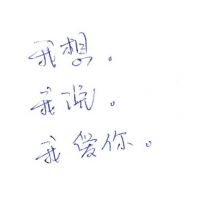 我想。
我说。
我爱你。